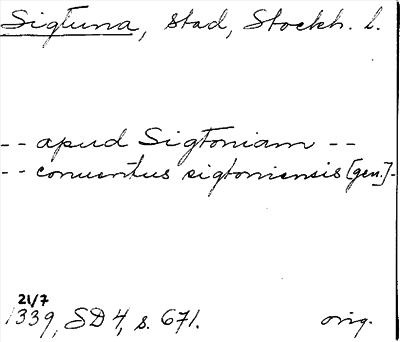 Sigtuna, stad, Stockh. l.
-- apud Sigtoniam --
-- conuentus sigtoniensis [gen.] -
21/7
1339, SD 4, s. 671. orig.